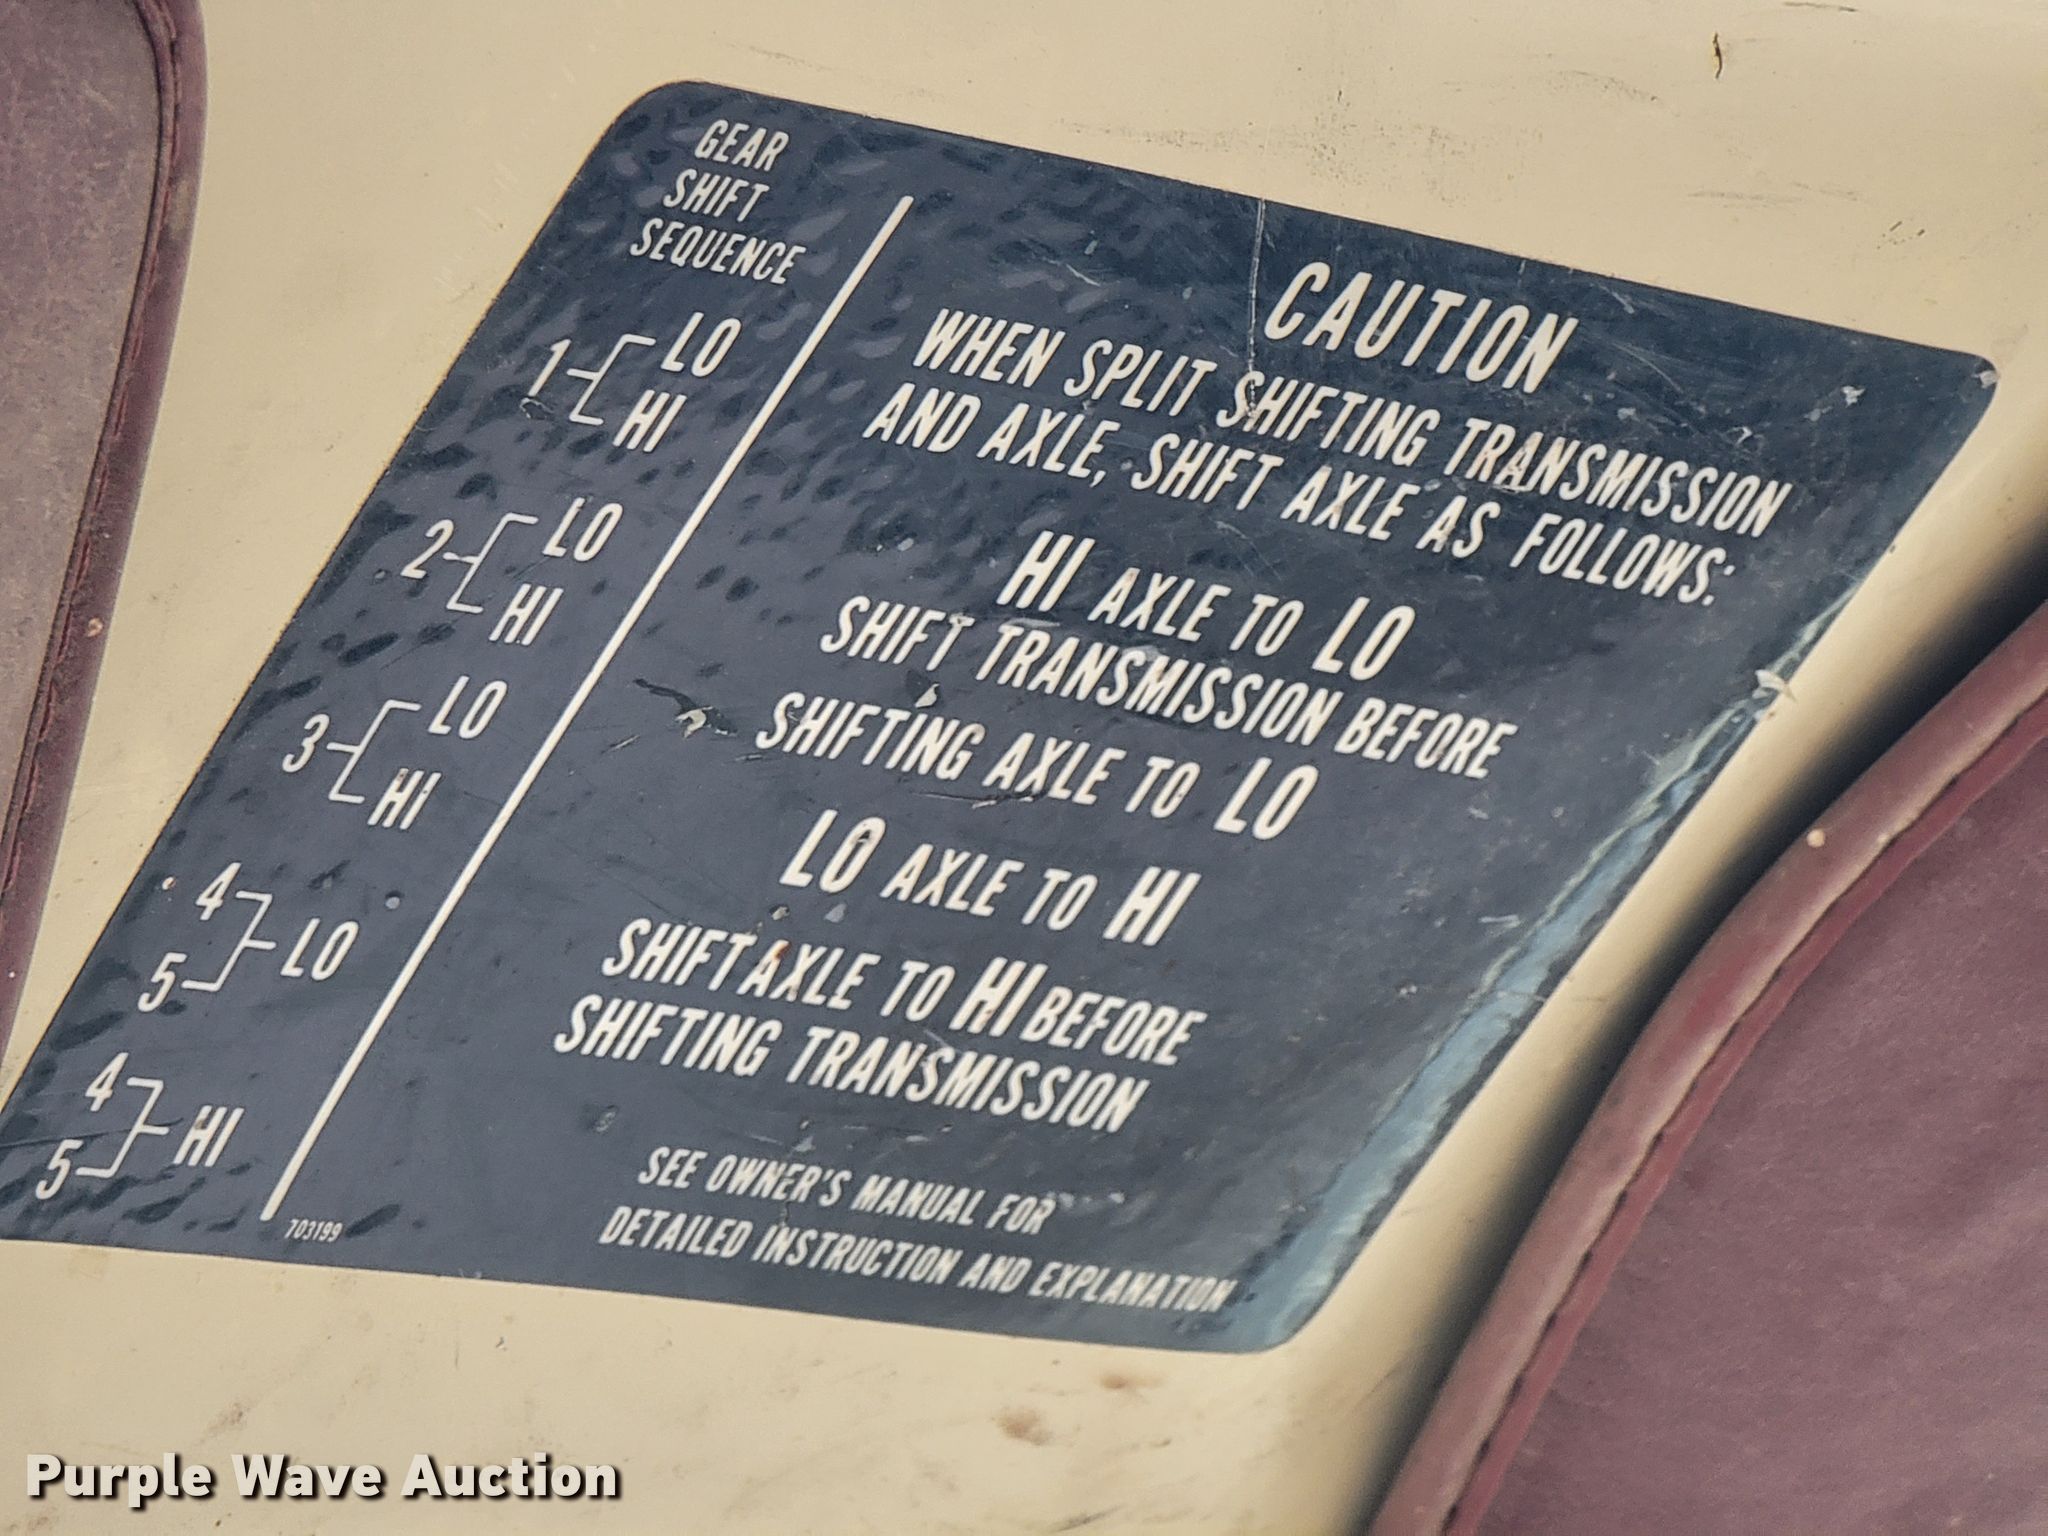 GEAR
SHIFT
SEQUENCE
1 LO
HI
2 LO
HI
3 LO
HI
4
5 LO
4
5 HI
703199
CAUTION
WHEN SPLIT SHIFTING TRANSMISSION
AND AXLE, SHIFT AXLE AS FOLLOWS:
HI AXLE TO LO
SHIFT TRANSMISSION BEFORE
SHIFTING AXLE TO LO
LO AXLE TO HI
SHIFT AXLE TO HI BEFORE
SHIFTING TRANSMISSION
SEE OWNER'S MANUAL FOR
DETAILED INSTRUCTION AND EXPLANATION
Purple Wave Auction